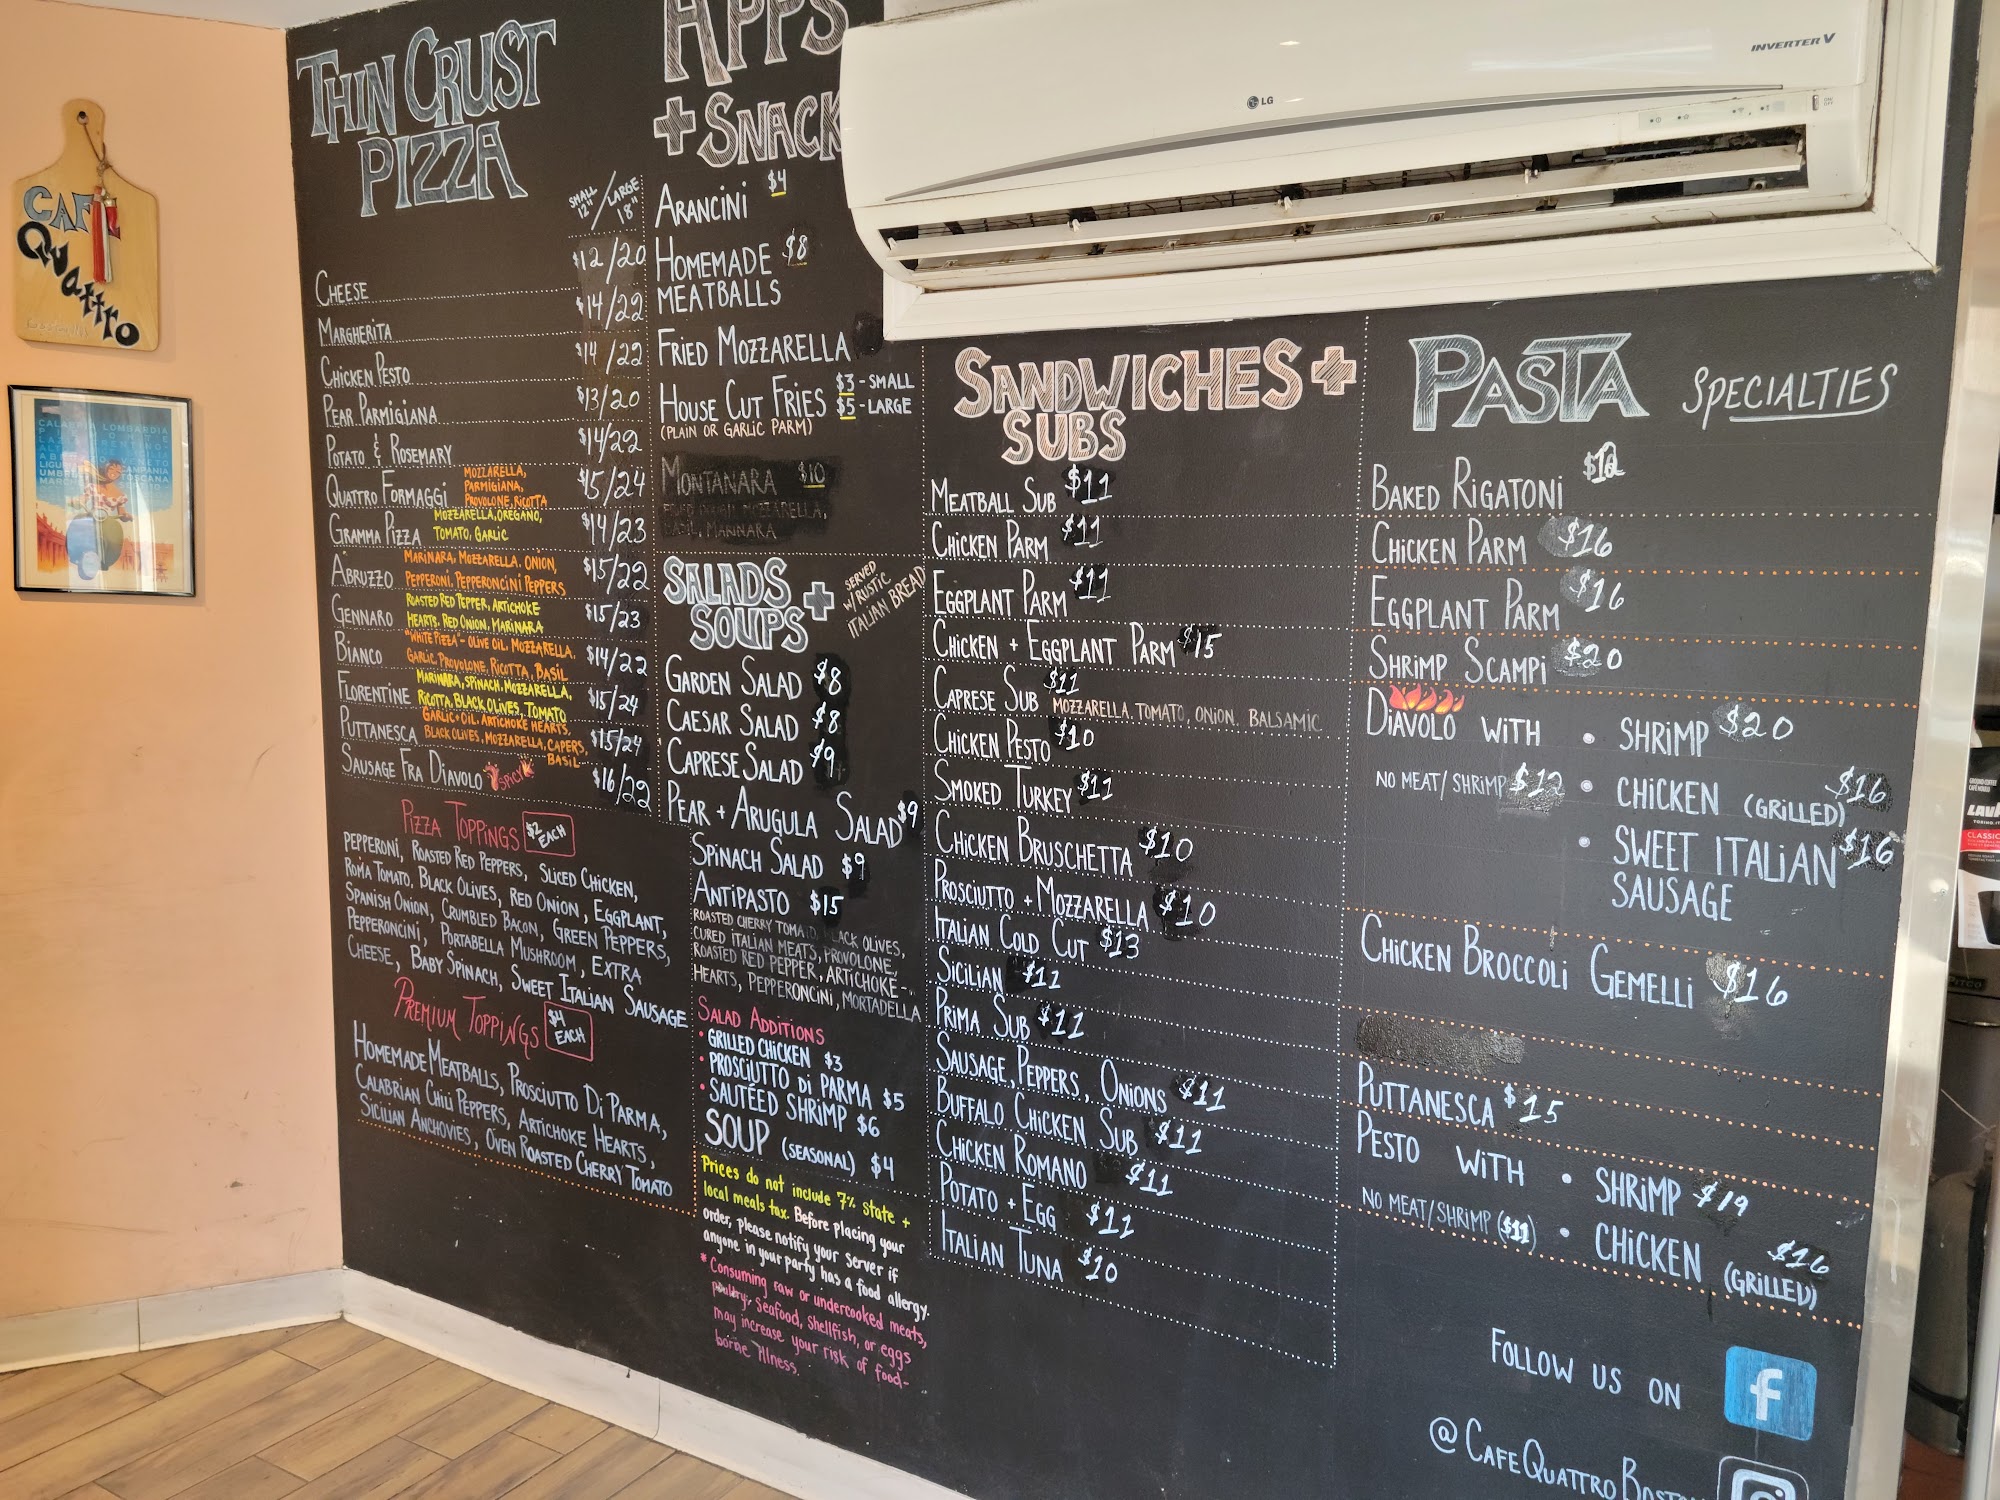 CAFE
Quattro
THIN CRUST
PIZZA
SMALL 12" / LARGE 18"
CHEESE $12/20
MARGHERITA $14/22
CHICKEN PESTO $14/22
PEAR PARMIGIANA $13/20
POTATO & ROSEMARY $14/22
QUATTRO FORMAGGI MOZZARELLA, PARMIGIANA, PROVOLONE, RICOTTA $15/24
GRAMMA PIZZA MOZZARELLA, OREGANO, TOMATO, GARLIC $14/23
ABRUZZO MARINARA, MOZZARELLA, ONION, PEPPERONI, PEPPERONCINI PEPPERS $15/22
GENNARO ROASTED RED PEPPER, ARTICHOKE HEARTS, RED ONION, MARINARA $15/23
BIANCO "WHITE PIZZA" - OLIVE OIL, MOZZARELLA, GARLIC, PROVOLONE, RICOTTA, BASIL $14/22
FLORENTINE MARINARA, SPINACH, MOZZARELLA, RICOTTA, BLACK OLIVES, TOMATO $15/24
PUTTANESCA GARLIC + OIL, ARTICHOKE HEARTS, BLACK OLIVES, MOZZARELLA, CAPERS, BASIL $15/24
SAUSAGE FRA DIAVOLO SPICY $16/22
PIZZA TOPPINGS $2 EACH
PEPPERONI, ROASTED RED PEPPERS, SLICED CHICKEN,
ROMA TOMATO, BLACK OLIVES, RED ONION, EGGPLANT,
SPANISH ONION, CRUMBLED BACON, GREEN PEPPERS,
PEPPERONCINI, PORTABELLA MUSHROOM, EXTRA
CHEESE, BABY SPINACH, SWEET ITALIAN SAUSAGE
PREMIUM TOPPINGS $4 EACH
HOMEMADE MEATBALLS, PROSCIUTTO DI PARMA,
CALABRIAN CHILI PEPPERS, ARTICHOKE HEARTS,
SICILIAN ANCHOVIES, OVEN ROASTED CHERRY TOMATO
APPS
+ SNACK
ARANCINI $4
HOMEMADE $8
MEATBALLS
FRIED MOZZARELLA
HOUSE CUT FRIES $3 - SMALL
$5 - LARGE
(PLAIN OR GARLIC PARM)
MONTANARA $10
FRIED DOUGH, MOZZARELLA,
BASIL, MARINARA
SALADS +
SOUPS
SERVED
W/ RUSTIC
ITALIAN BREAD
GARDEN SALAD $8
CAESAR SALAD $8
CAPRESE SALAD $9
PEAR + ARUGULA SALAD $9
SPINACH SALAD $9
ANTIPASTO $15
ROASTED CHERRY TOMATO, BLACK OLIVES,
CURED ITALIAN MEATS, PROVOLONE,
ROASTED RED PEPPER, ARTICHOKE-
HEARTS, PEPPERONCINI, MORTADELLA
SALAD ADDITIONS
• GRILLED CHICKEN $3
• PROSCIUTTO DI PARMA $5
• SAUTÉED SHRIMP $6
SOUP (SEASONAL) $4
Prices do not include 7% state +
local meals tax. Before placing your
order, please notify your server if
anyone in your party has a food allergy.
* Consuming raw or undercooked meats,
poultry, seafood, shellfish, or eggs
may increase your risk of food-
borne illness.
LG
INVERTER V
SANDWICHES +
SUBS
MEATBALL SUB $11
CHICKEN PARM $11
EGGPLANT PARM $11
CHICKEN + EGGPLANT PARM $15
CAPRESE SUB $11 MOZZARELLA, TOMATO, ONION, BALSAMIC
CHICKEN PESTO $10
SMOKED TURKEY $11
CHICKEN BRUSCHETTA $10
PROSCIUTTO + MOZZARELLA $10
ITALIAN COLD CUT $13
SICILIAN $11
PRIMA SUB $11
SAUSAGE, PEPPERS, ONIONS $11
BUFFALO CHICKEN SUB $11
CHICKEN ROMANO $11
POTATO + EGG $11
ITALIAN TUNA $10
PASTA SPECIALTIES
BAKED RIGATONI
CHICKEN PARM $16
EGGPLANT PARM $16
SHRIMP SCAMPI $20
DIAVOLO WITH • SHRIMP $20
NO MEAT/SHRIMP $12 • CHICKEN (GRILLED) $16
• SWEET ITALIAN $16
SAUSAGE
CHICKEN BROCCOLI GEMELLI $16
PUTTANESCA $15
PESTO WITH • SHRIMP $19
NO MEAT/SHRIMP ($11) • CHICKEN $16
(GRILLED)
FOLLOW US ON f
@CAFEQUATTROBOSTON